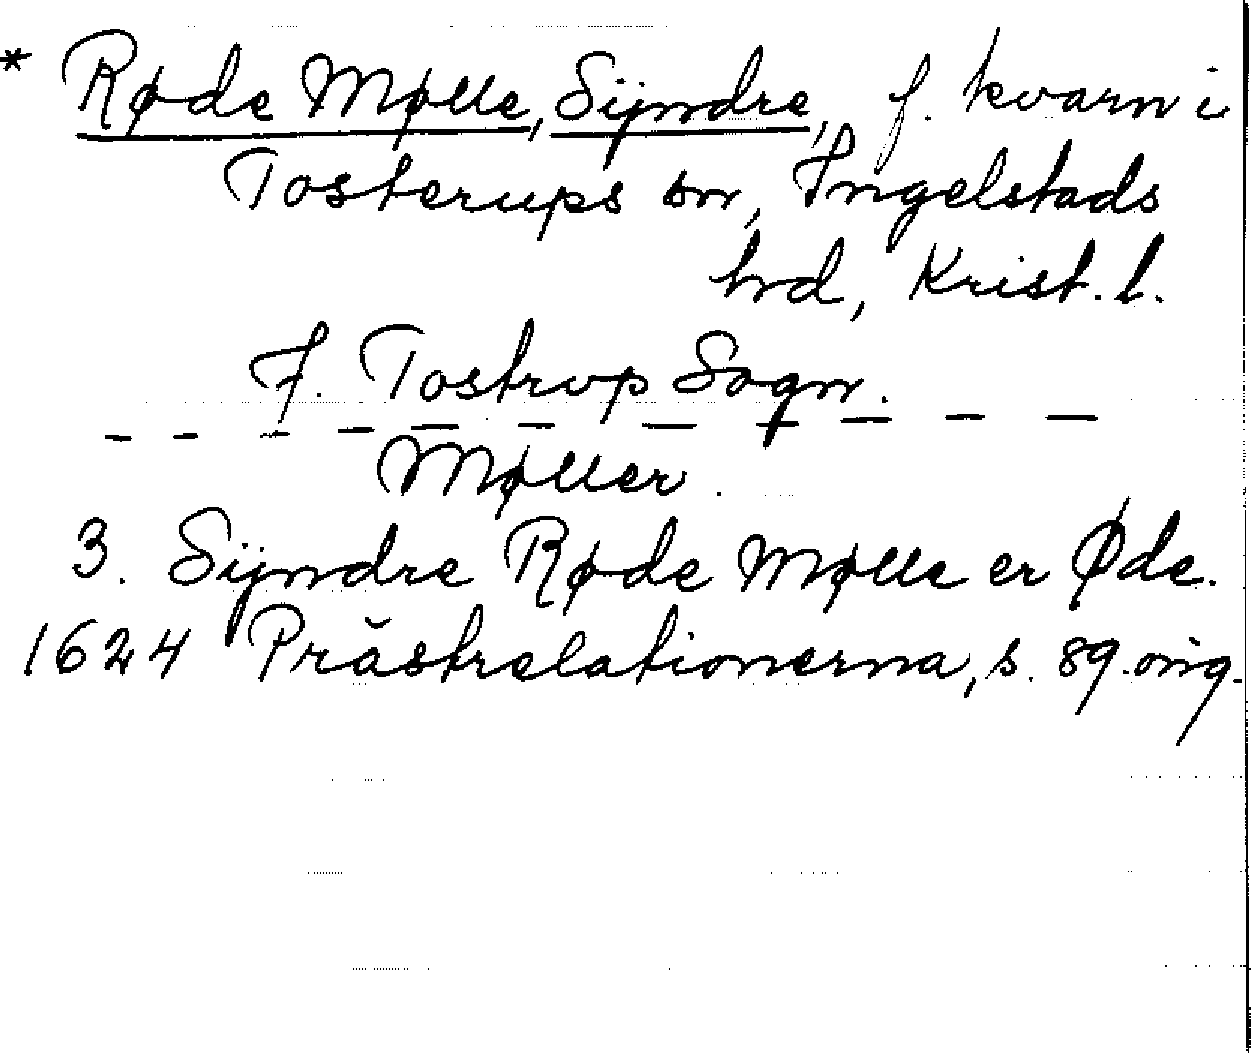 * Røde Mølle, Sÿndre, f. kvarn i
Tosterups sn, Ingelstads
hd, Krist. l.
J. Tostrup Sogn.
Møller.
3. Sÿndre Røde Mølle er Øde.
1624 Prästrelationerna, s. 89. orig.